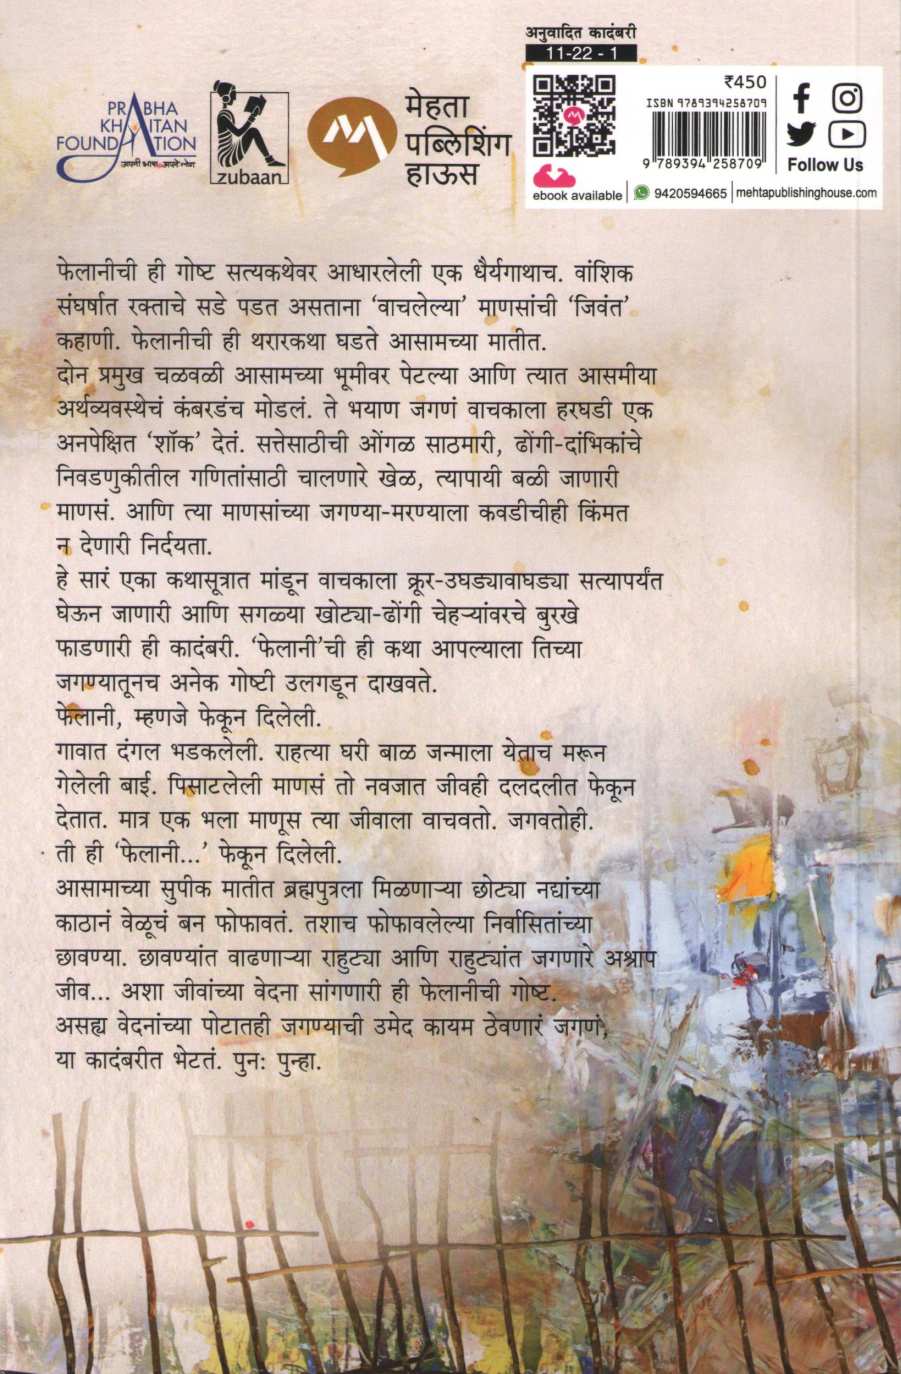 अनुवादित कादंबरी
11-22 - 1
PRABHA
KHAITAN
FOUNDATION
zubaan
मेहता
पब्लिशिंग
हाऊस
₹450
ISBN 9789394258709
9 789394 258709
Follow Us
ebook available
9420594665
mehtapublishinghouse.com
फेलानीची ही गोष्ट सत्यकथेवर आधारलेली एक धैर्यगाथाच. वांशिक
संघर्षात रक्ताचे सडे पडत असताना ‘वाचलेल्या’ माणसांची ‘जिवंत’
कहाणी. फेलानीची ही थरारकथा घडते आसामच्या मातीत.
दोन प्रमुख चळवळी आसामच्या भूमीवर पेटल्या आणि त्यात आसमीया
अर्थव्यवस्थेचं कंबरडंच मोडलं. ते भयाण जगणं वाचकाला हरघडी एक
अनपेक्षित ‘शॉक’ देतं. सत्तेसाठीची ओंगळ साठमारी, ढोंगी-दांभिकांचे
निवडणुकीतील गणितांसाठी चालणारे खेळ, त्यापायी बळी जाणारी
माणसं. आणि त्या माणसांच्या जगण्या-मरण्याला कवडीचीही किंमत
न देणारी निर्दयता.
हे सारं एका कथासूत्रात मांडून वाचकाला क्रूर-उघड्यावाघड्या सत्यापर्यंत
घेऊन जाणारी आणि सगळ्या खोट्या-ढोंगी चेहऱ्यांवरचे बुरखे
फाडणारी ही कादंबरी. ‘फेलानी’ची ही कथा आपल्याला तिच्या
जगण्यातूनच अनेक गोष्टी उलगडून दाखवते.
फेलानी, म्हणजे फेकून दिलेली.
गावात दंगल भडकलेली. राहत्या घरी बाळ जन्माला येताच मरून
गेलेली बाई. पिसाटलेली माणसं तो नवजात जीवही दलदलीत फेकून
देतात. मात्र एक भला माणूस त्या जीवाला वाचवतो. जगवतोही.
ती ही ‘फेलानी...’ फेकून दिलेली.
आसामाच्या सुपीक मातीत ब्रह्मपुत्रला मिळणाऱ्या छोट्या नद्यांच्या
काठानं वेळूचं बन फोफावतं. तशाच फोफावलेल्या निर्वासितांच्या
छावण्या. छावण्यांत वाढणाऱ्या राहुट्या आणि राहुट्यांत जगणारे अश्राप
जीव... अशा जीवांच्या वेदना सांगणारी ही फेलानीची गोष्ट.
असह्य वेदनांच्या पोटातही जगण्याची उमेद कायम ठेवणारं जगणं,
या कादंबरीत भेटतं. पुनः पुन्हा.